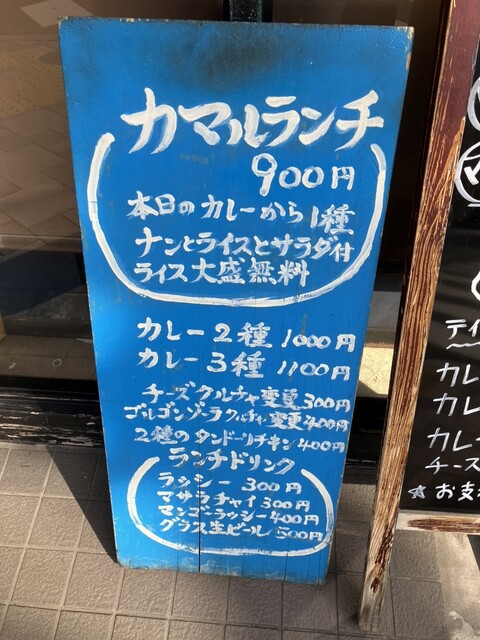 カマルランチ
900円
本日のカレーから1種
ナンとライスとサラダ付
ライス大盛無料
カレー2種 1000円
カレー3種 1100円
チーズクルチャ変更300円
ゴルゴンゾーラクルチャ変更400円
2種のタンドーリチキン400円
ランチドリンク
ラッシー 300円
マサラチャイ 300円
マンゴーラッシー400円
グラス生ビール 500円
テイ
カレ
カレ
カレー
チース
☆お支